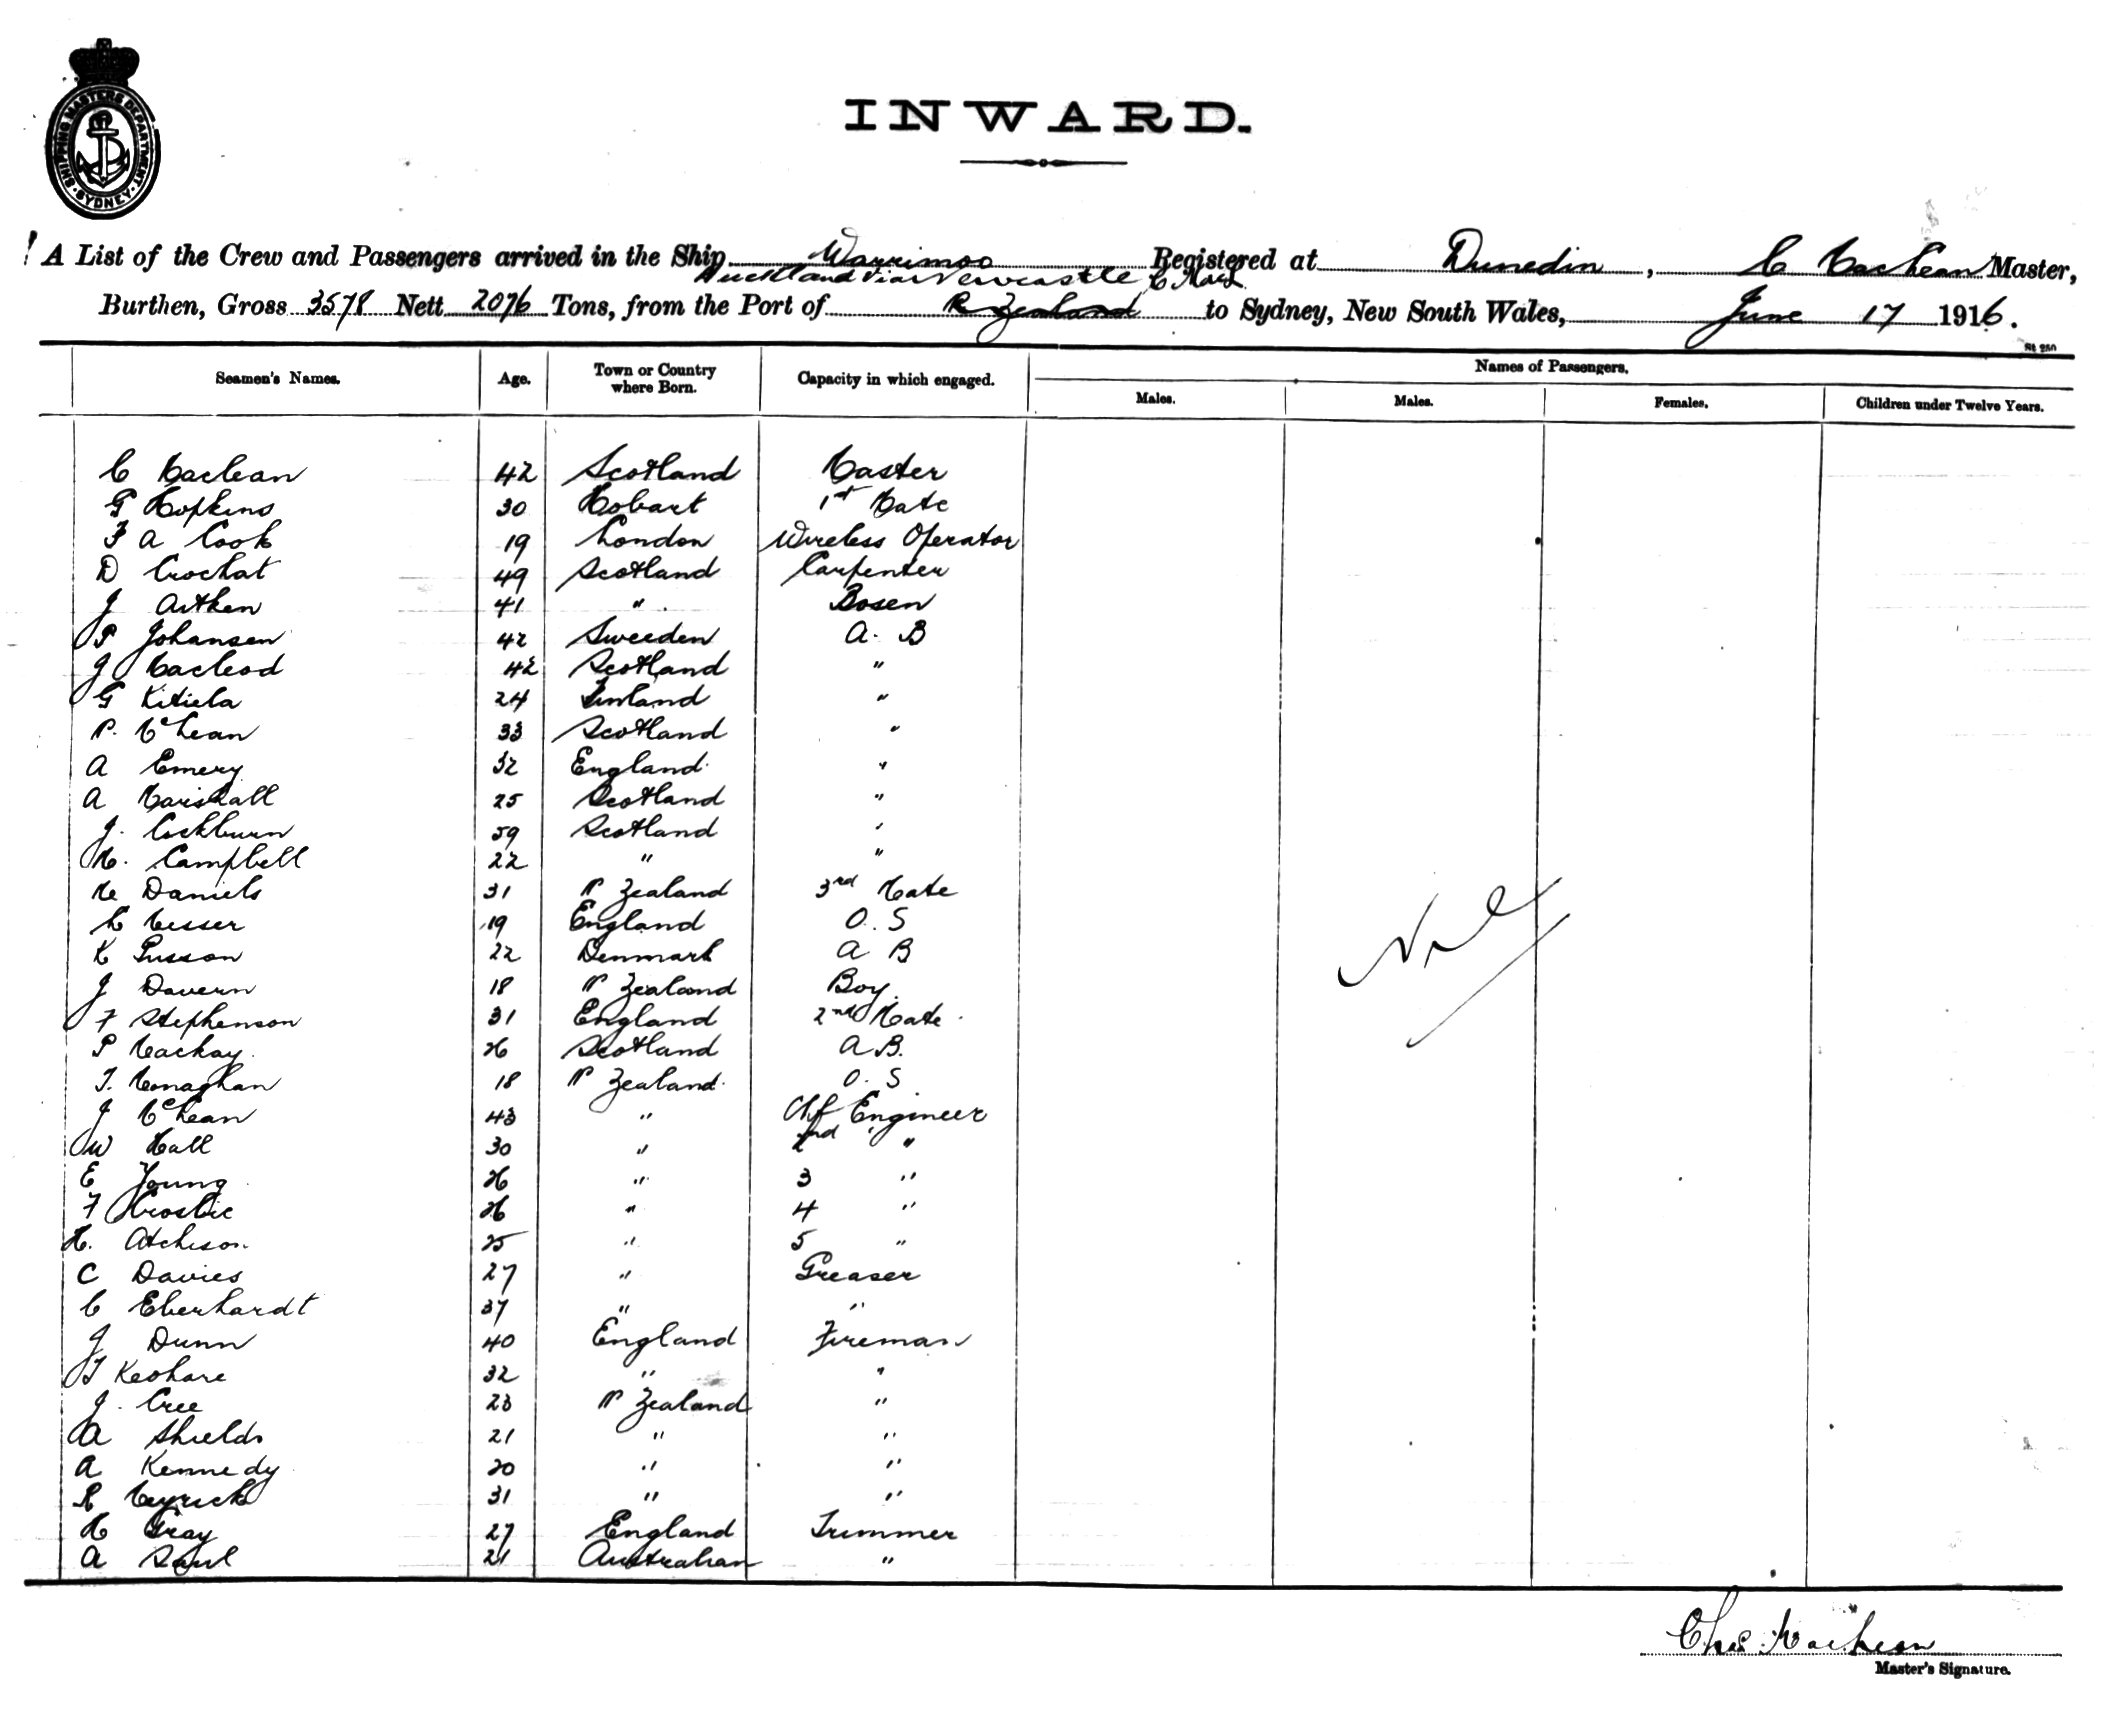 SHIPPING MASTERS DEPARTMENT. SYDNEY.
INWARD.
A List of the Crew and Passengers arrived in the Ship Warrimoo Registered at Dunedin, C MacLean Master,
Auckland via Newcastle
Burthen, Gross 3578 Nett 2076 Tons, from the Port of Zealand to Sydney, New South Wales, June 17 1916.
Seamen's Names. Age. Town or Country where Born. Capacity in which engaged. Names of Passengers.
Males. Males. Females. Children under Twelve Years.
C Maclean 42 Scotland Master
G Hopkins 30 Hobart 1st Mate
F A Cook 19 London Wireless Operator
D Crochat 49 Scotland Carpenter
J Aitken 41 " Bosen
P Johansen 42 Sweeden A. B
J Macleod 42 Scotland "
G Kitiela 24 Finland "
P. McLean 33 Scotland "
A Emery 32 England "
A Marshall 25 Scotland "
J. Cockburn 59 Scotland "
H. Campbell 22 " "
H Daniels 31 N Zealand 3rd Mate
L Messer 19 England O. S
K 22 Denmark A B
J Davern 18 N Zealand Boy.
F Stephenson 31 England 2nd Mate
P Mackay. 26 Scotland A B.
T. Monaghan 18 N Zealand O. S
J McLean 43 " Chf Engineer
W Hall 30 " 2nd "
E Young 26 " 3 "
F Crosbie 26 " 4 "
H. Atchison 25 " 5 "
C Davies 27 " Greaser
C Eberhardt 37 " "
J Dunn 40 England Fireman
T Keohane 32 " "
J. Cree 23 N Zealand "
A Shields 21 " "
A Kennedy 20 " "
R Meyrick 31 " "
H Gray 27 England Trimmer
A Saul 21 Australian "
Nil
Chas. MacLean
Master's Signature.